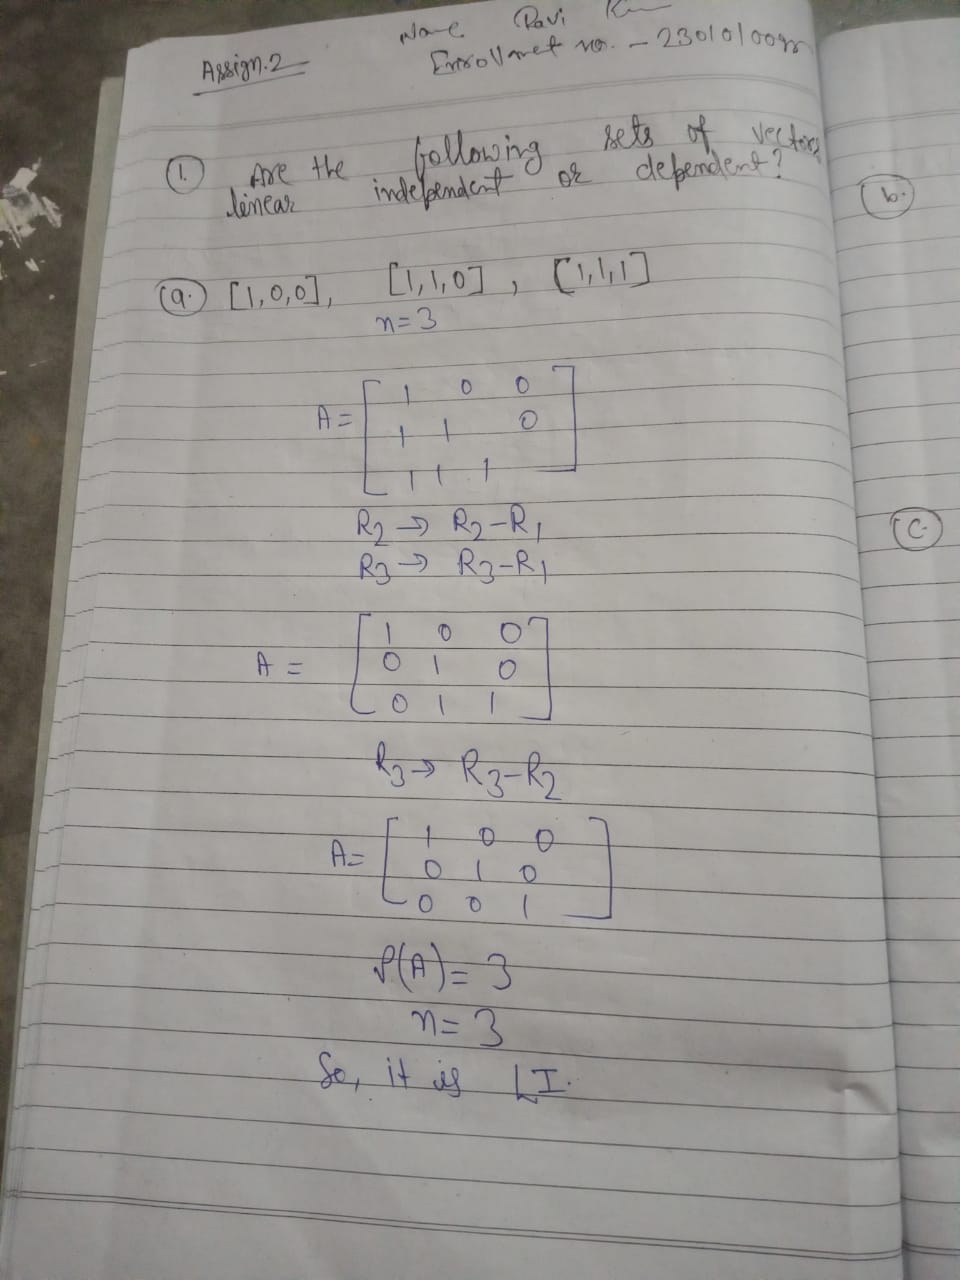 Name Ravi
Assign.2
Enrollmet no. - 230101009
1. Are the following sets of vectors
linear independent or dependent?
a. [1,0,0], [1,1,0], [1,1,1]
n=3
A= [ 1 0 0
1 1 0
1 1 1 ]
R2 → R2-R1
R3 → R3-R1
A = [ 1 0 0
0 1 0
0 1 1 ]
R3 → R3-R2
A= [ 1 0 0
0 1 0
0 0 1 ]
ρ(A)= 3
n= 3
So, it is LI.
b.
c.